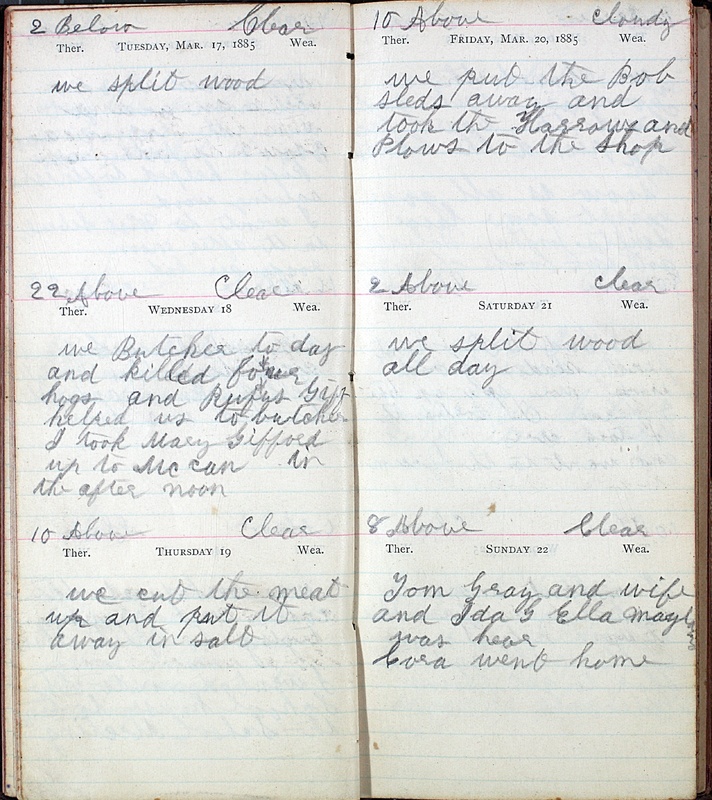 2 Below Clear
Ther. TUESDAY, MAR. 17, 1885 Wea.
we split wood
22 Above Clear
Ther. WEDNESDAY 18 Wea.
we Butcher to day
and killed four
hogs and Rufus Giff
helped us to butcher
I took Mary Gifford
up to Mc can in
the after noon
10 Above Clear
Ther. THURSDAY 19 Wea.
we cut the meat
up and put it
away in salt
10 Above Cloudy
Ther. FRIDAY, MAR. 20, 1885 Wea.
we put the Bob
sleds away and
took the Harrow and
Plows to the shop
2 Above Clear
Ther. SATURDAY 21 Wea.
we split wood
all day
8 Above Clear
Ther. SUNDAY 22 Wea.
Tom Gray and wife
and Ida G Ella
was hear
Cora went home